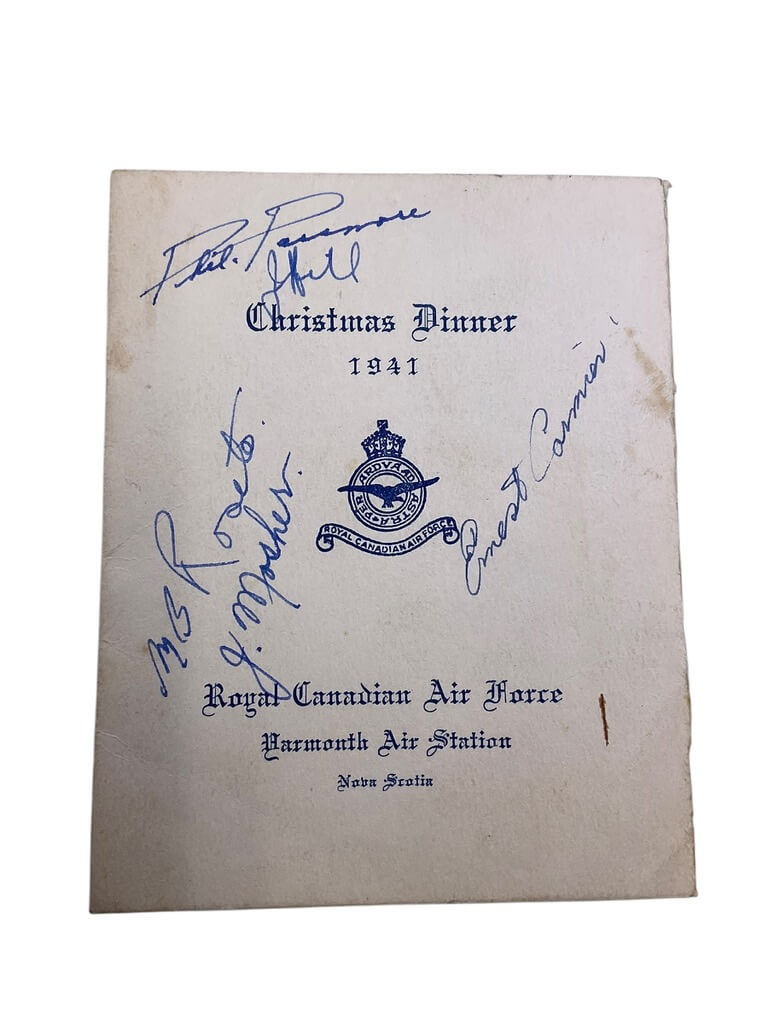 Phil. Passmore
J Hill
Christmas Dinner
1941
PER ARDVA AD ASTRA
ROYAL CANADIAN AIR FORCE
Ernest Cormier
J. Mosher.
Royal Canadian Air Force
Yarmouth Air Station
Nova Scotia